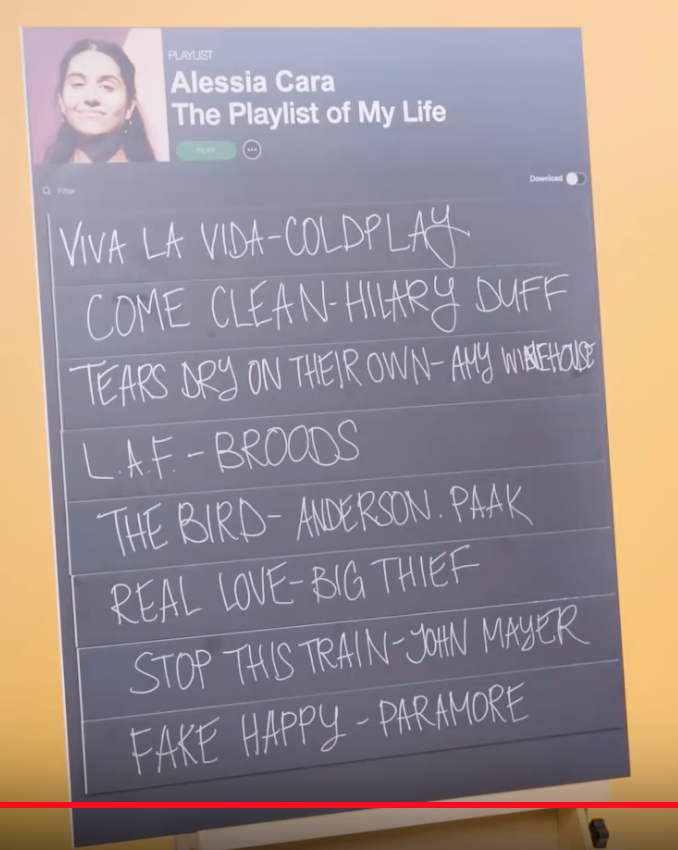 PLAYLIST
Alessia Cara
The Playlist of My Life
PLAY
Filter
Download
VIVA LA VIDA-COLDPLAY
COME CLEAN-HILARY DUFF
TEARS DRY ON THEIR OWN-AMY WINEHOUSE
L.A.F. - BROODS
THE BIRD- ANDERSON. PAAK
REAL LOVE-BIG THIEF
STOP THIS TRAIN-JOHN MAYER
FAKE HAPPY - PARAMORE